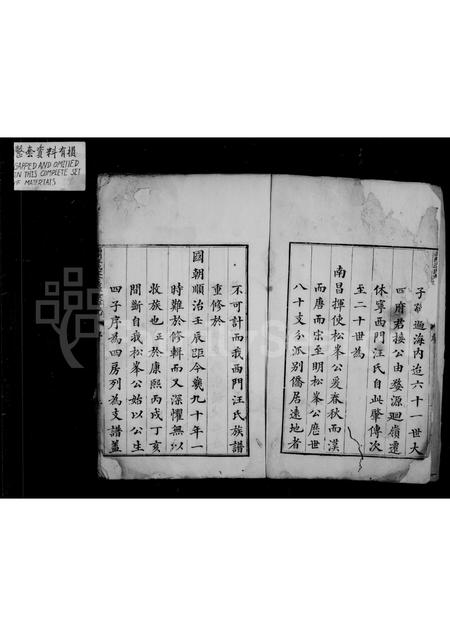 整套資料有損
GAPPED AND OMITTED
IN THIS COMPLETE SET
OF MATERIALS
子 遍海内迨六十一世大
四府君接公由婺源迴嶺遷
休寧西門汪氏自此肇傳次
至二十世為
南昌揮使松峯公爰春秋而漢
而唐而宋至明松峯公歷世
八十支分派別僑居遠地者
不可計而我西門汪氏族譜
重修於
國朝順治壬辰距今幾九十年一
時難於修輯而又深懼無以
收族也正於康熙丙戌丁亥
間斷自我松峯公始以公生
四子序為四房列為支譜蓋